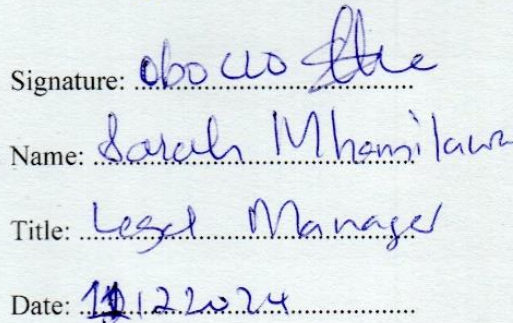 Signature:
Name: Sarah Mhamilawa
Title: Legal Manager
Date: 11122024